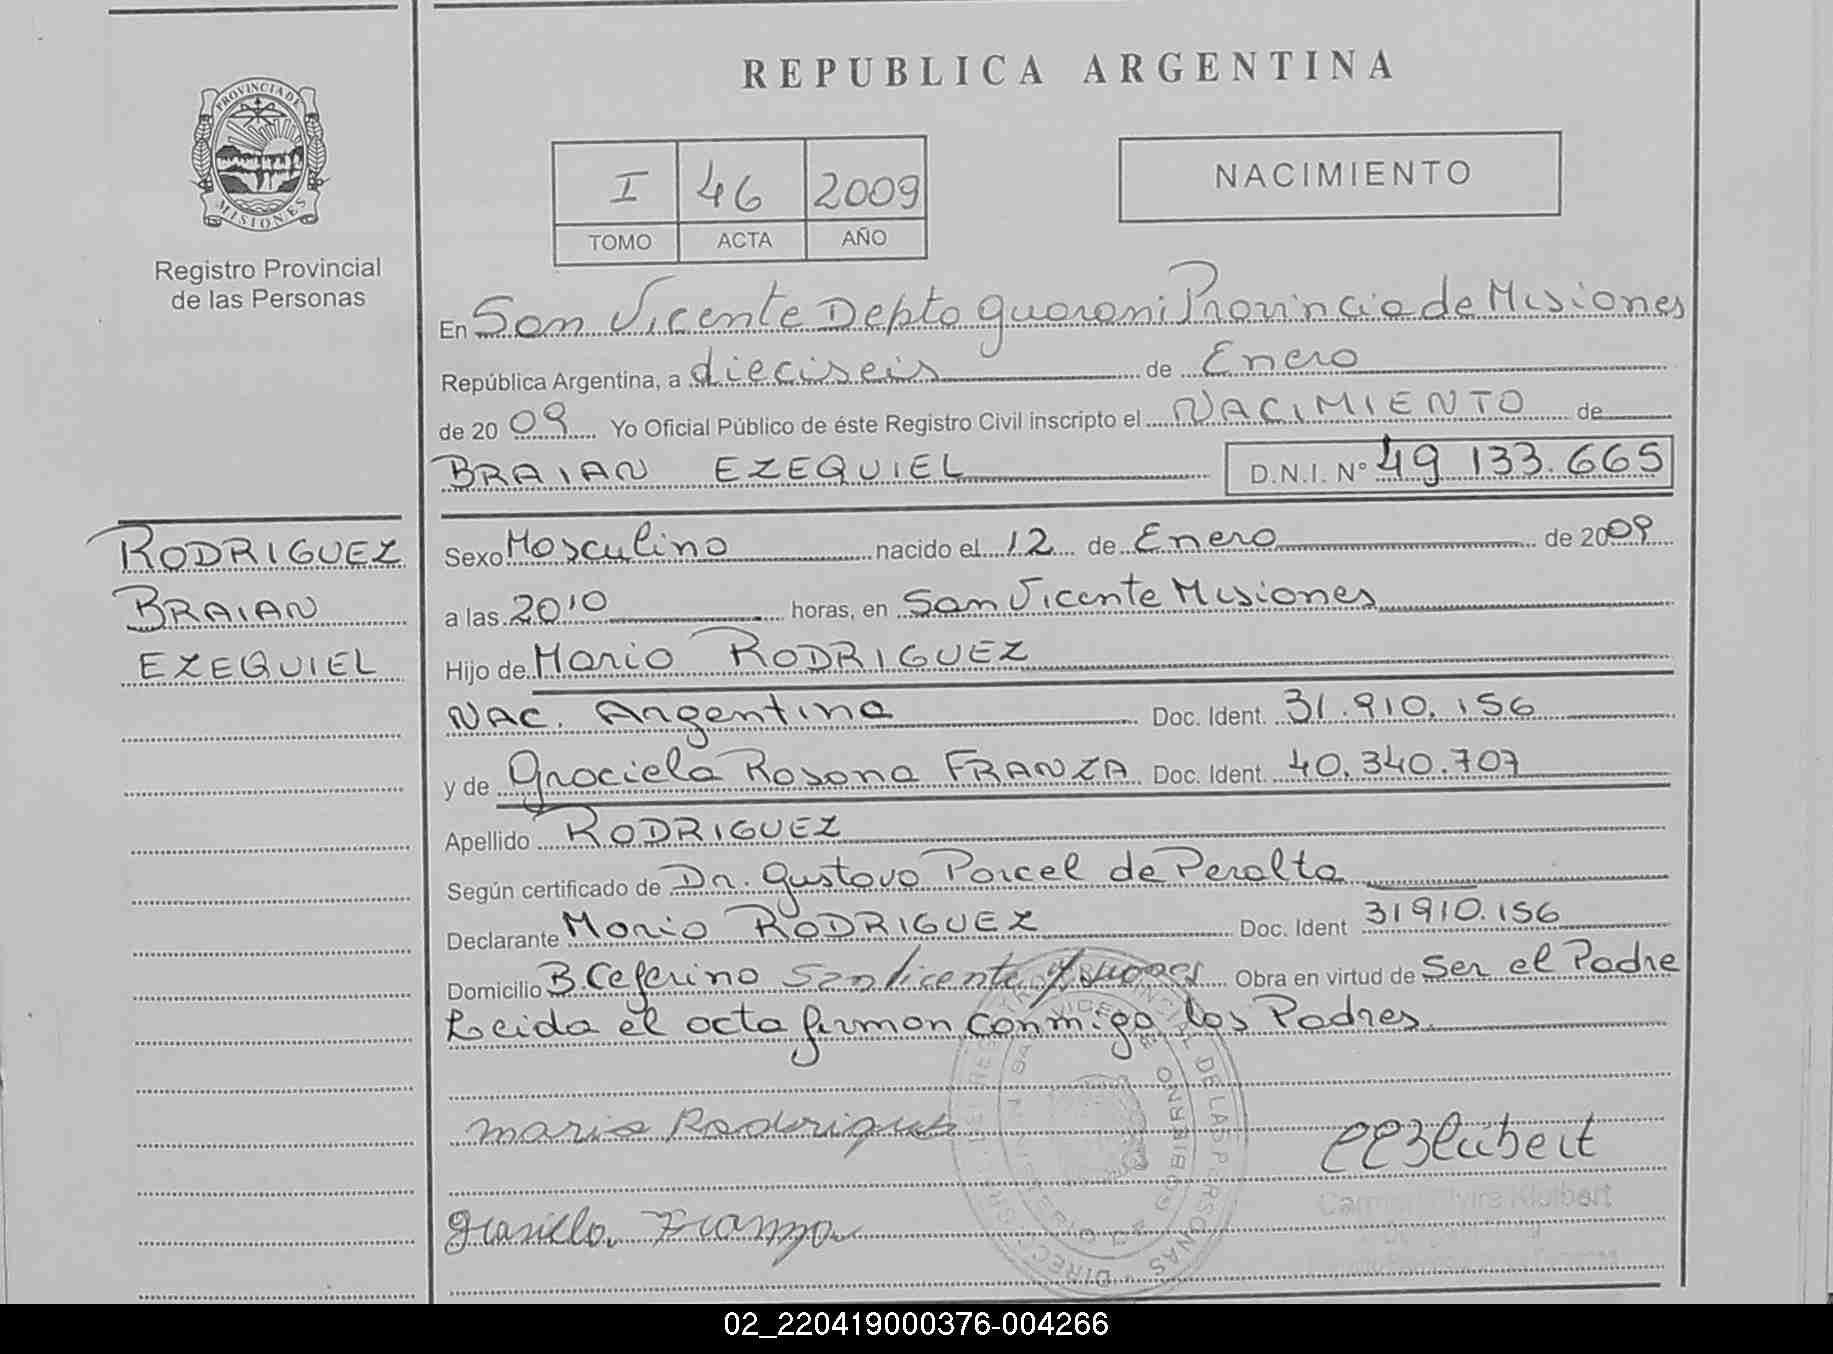 REPUBLICA ARGENTINA
PROVINCIA DE MISIONES
Registro Provincial
de las Personas
I 46 2009
TOMO ACTA AÑO
NACIMIENTO
En San Vicente Depto Guarani Provincia de Misiones
República Argentina, a dieciseis de Enero
de 2009 Yo Oficial Público de éste Registro Civil inscripto el NACIMIENTO de
BRAIAN EZEQUIEL D.N.I. Nº 49 133.665
RODRIGUEZ
BRAIAN
EZEQUIEL
Sexo Masculino nacido el 12 de Enero de 2009
a las 2010 horas, en San Vicente Misiones
Hijo de Mario RODRIGUEZ
NAC. Argentina Doc. Ident. 31.910.156
y de Graciela Rosana FRANZA Doc. Ident. 40.340.707
Apellido RODRIGUEZ
Según certificado de Dr. Gustavo Porcel de Peralta
Declarante Mario RODRIGUEZ Doc. Ident 31910.156
Domicilio B. Ceferino San Vicente Obra en virtud de Ser el Padre
Leida el acta firman conmigo los Padres.
Mario Rodriguez
Graciela Franza
Klubert
02_220419000376-004266